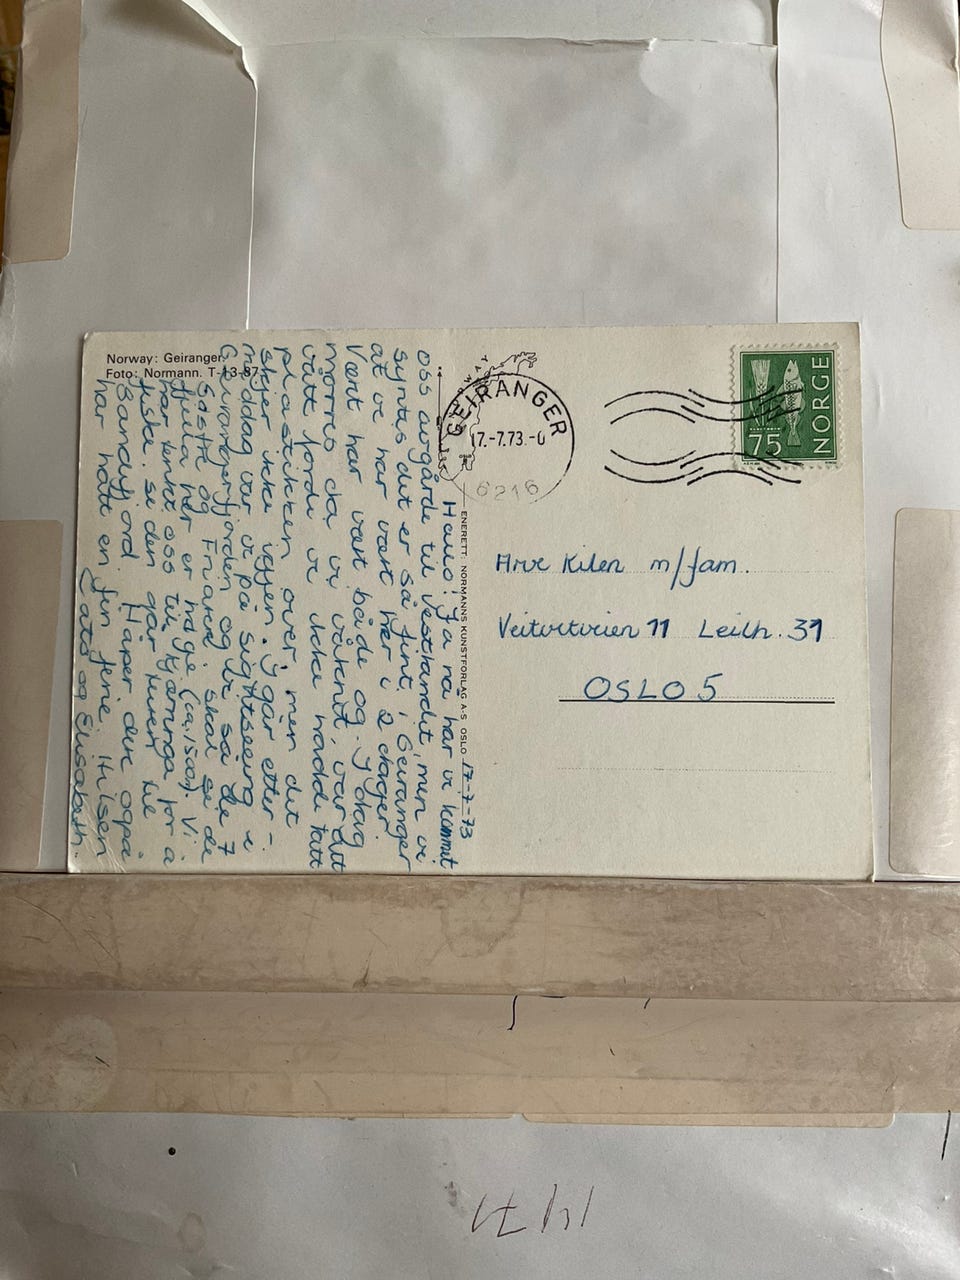 Norway: Geiranger.
Foto: Normann. T-13-87
NORWAY
OSLO
GEIRANGER
17.-7.73.-0
6216
75
NORGE
ENERETT: NORMANNS KUNSTFORLAG A-S OSLO
17-7-73
Hallo! Ja nå har vi kommet
oss avgårde til Vestlandet, men vi
syntes det er så fint i Geiranger
at vi har vært her i 2 dager.
Været har vært både og. I dag
mårres da vi våknet, var det
vått fordi vi ikke hadde tatt
plastikken over, men det
skjer ikke igjen. I går etter-
middag var vi på sightseeing i
Geirangerfjorden og vi så de 7
Søstre og Friaren. Skal si de
fjella her er høge (ca. 1500m). Vi
har tenkt oss til Kjørringa for å
fiske, så den går turen til
Sandefjord. Håper dere også
har hatt en fin ferie. Hilsen
og Elisabeth.
Arve Kilen m/fam.
Veitvetveien 11 Leilh. 31
OSLO 5